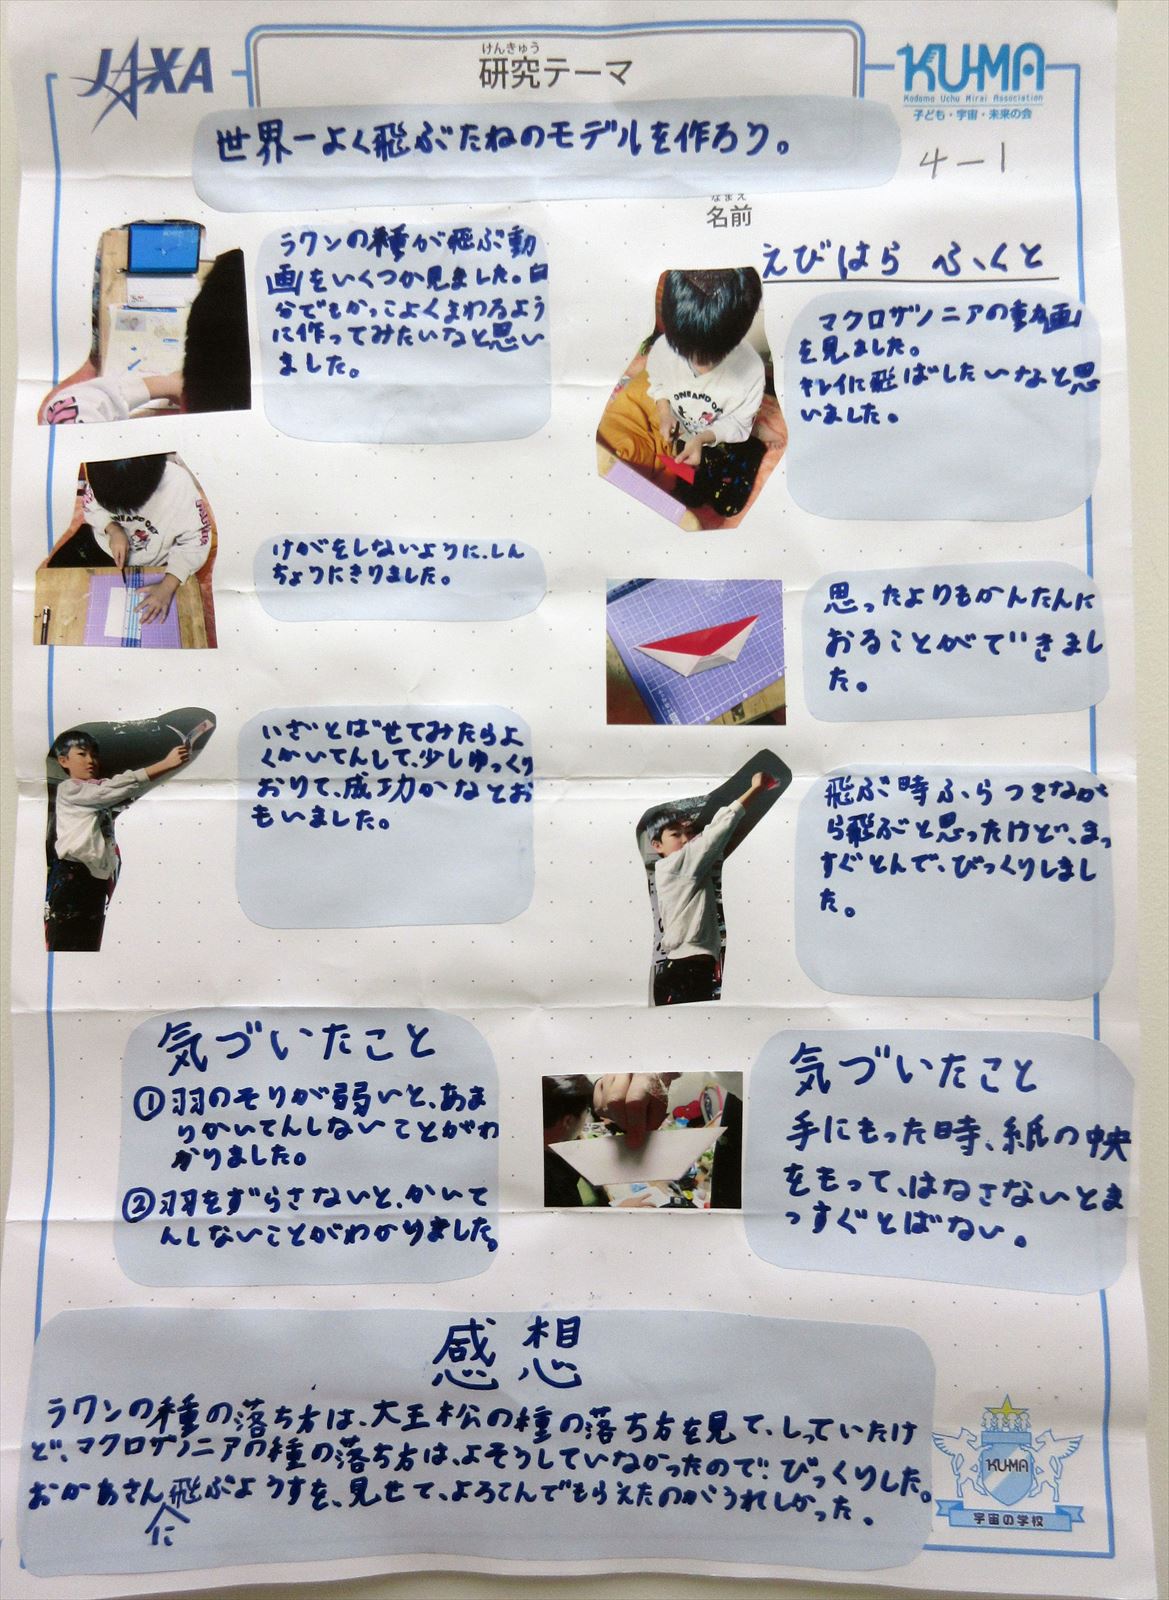 JAXA
けんきゅう
研究テーマ
KU-MA
Kodomo Uchu Mirai Association
子ども・宇宙・未来の会
世界一よく飛ぶたねのモデルを作ろう。
4-1
なまえ
名前
えびはら ふくと
ラワンの種が飛ぶ動
画をいくつか見ました。自
分でもかっこよくまわるよう
に作ってみたいなと思い
ました。
マクロザノニアの動画
を見ました。
キレイに飛ばしたいなと思
いました。
けがをしないように、しん
ちょうにきりました。
思ったよりもかんたんに
おることができまし
た。
いざとばせてみたらよ
くかいてんして、少しゆっくり
おりて、成功かなとお
もいました。
飛ぶ時ふらつきなが
ら飛ぶと思ったけど、まっ
すぐとんで、びっくりしまし
た。
気づいたこと
①羽のそりが弱いと、あま
りかいてんしないことがわ
かりました。
②羽をずらさないと、かいて
んしないことがわかりました。
気づいたこと
手にもった時、紙の中央
をもって、はなさないとま
っすぐとばない。
感想
ラワンの種の落ち方は、大王松の種の落ち方を見て、しっていたけ
ど、マクロザノニアの種の落ち方は、よそうしていなかったので、びっくりした。
おかあさんに飛ぶようすを、見せて、よろこんでもらえたのがうれしかった。
KU-MA
宇宙の学校